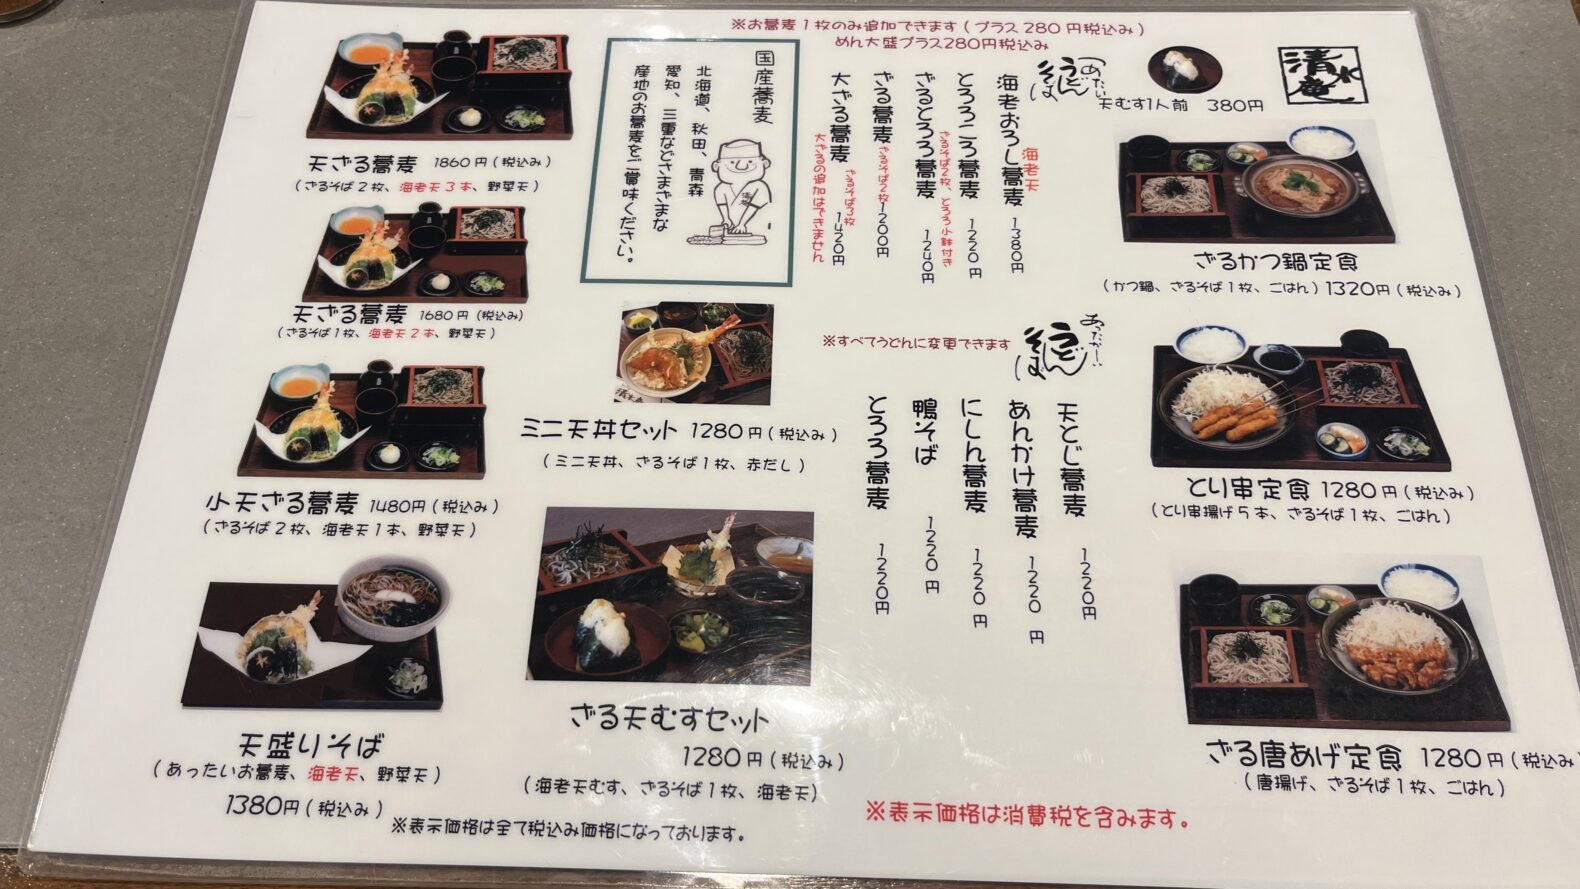 ※お蕎麦1枚のみ追加できます(プラス280円税込み)
めん大盛プラス280円税込み
清水庵
天ざる蕎麦 1860円(税込み)
(ざるそば2枚、海老天3本、野菜天)
天ざる蕎麦 1680円(税込み)
(ざるそば1枚、海老天2本、野菜天)
小天ざる蕎麦 1480円(税込み)
(ざるそば2枚、海老天1本、野菜天)
天盛りそば
(あったいお蕎麦、海老天、野菜天)
1380円(税込み)
国産蕎麦
北海道、秋田、青森
愛知、三重などさまざまな
産地のお蕎麦をご賞味ください。
ミニ天丼セット 1280円(税込み)
(ミニ天丼、ざるそば1枚、赤だし)
ざる天むすセット
1280円(税込み)
(海老天むす、ざるそば1枚、海老天)
※表示価格は全て税込み価格になっております。
うどん
そば
海老おろし蕎麦 海老天 1380円
とろろころ蕎麦 1220円
ざるとろろ蕎麦 ざるそば2枚、とろろ小鉢付き 1240円
ざる蕎麦 ざるそば2枚 1200円
大ざる蕎麦 ざるそば3枚 1420円
大ざるの追加はできません
※すべてうどんに変更できます
あったかーい
うどん
そば
天とじ蕎麦 1220円
あんかけ蕎麦 1220円
にしん蕎麦 1220円
鴨そば 1220円
とろろ蕎麦 1220円
※表示価格は消費税を含みます。
天むす1人前 380円
ざるかつ鍋定食
(かつ鍋、ざるそば1枚、ごはん)1320円(税込み)
とり串定食 1280円(税込み)
(とり串揚げ5本、ざるそば1枚、ごはん)
ざる唐あげ定食 1280円(税込み)
(唐揚げ、ざるそば1枚、ごはん)